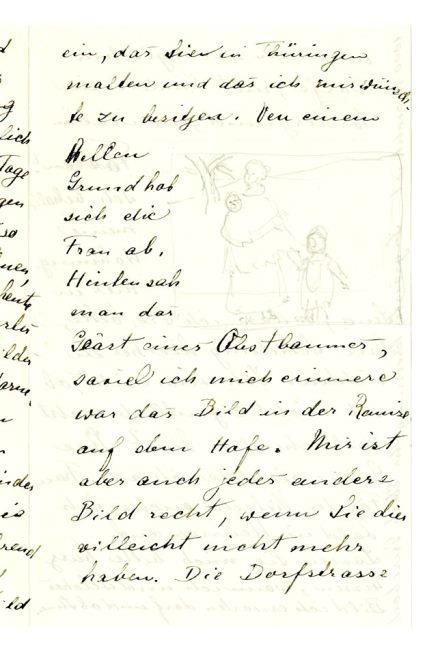 ein, das Sie in Thüringen
malten und das ich mir wünsch-
te zu besitzen. Von einem
hellen
Grund hob
sich die
Frau ab.
Hinten sah
man das
Geäst eines Obstbaumes,
soviel ich mich erinnere
war das Bild in der Remise
auf dem Hofe. Mir ist
aber auch jedes andere
Bild recht, wenn Sie dies
villeicht nicht mehr
haben. Die Dorfstrasse
lich
Tage
gen
so
heute
ilder
inder
rend
ild